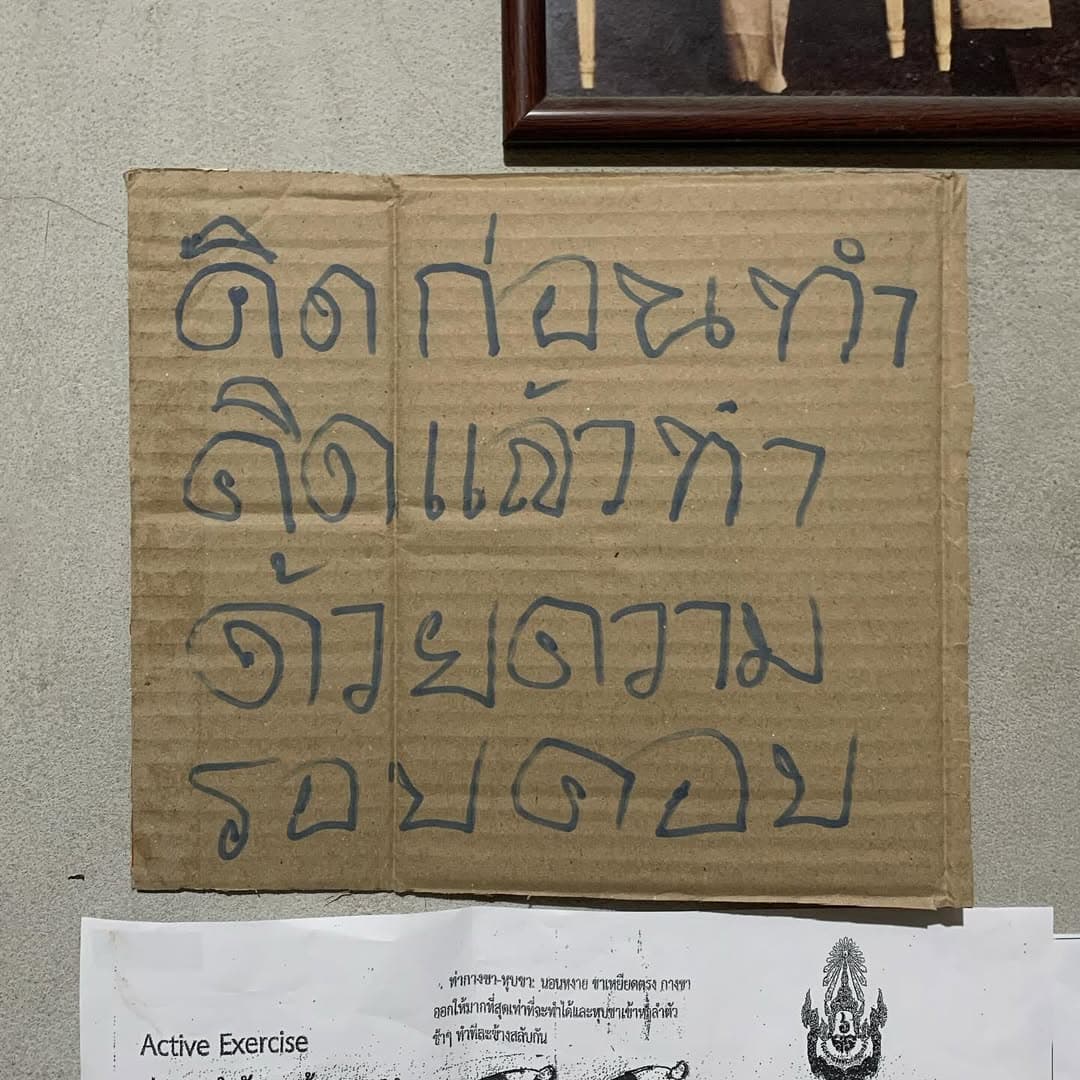 คิดก่อนทำ
คิดแล้วทำ
ด้วยความ
รอบคอบ
ท่ากางขา-หุบขา: นอนหงาย ขาเหยียดตรง กางขา
ออกให้มากที่สุดเท่าที่จะทำได้และหุบขาเข้าหาลำตัว
ช้าๆ ทำทีละข้างสลับกัน
Active Exercise